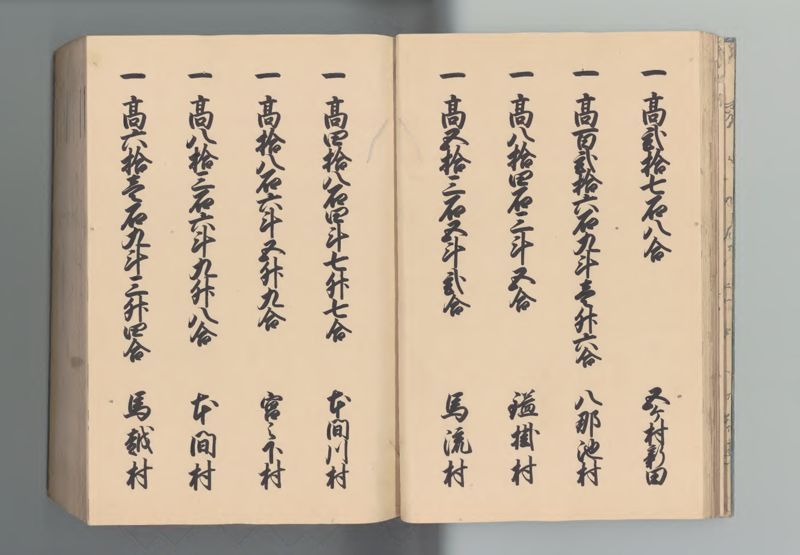 一 高弐拾七石八合 五ケ村新田
一 高百弐拾六石九斗壱升六合 八那池村
一 高八拾四石三斗五合 鎰掛村
一 高五拾三石五斗弐合 馬流村
一 高四拾八石四斗七升七合 本間川村
一 高拾八石六斗五升九合 宮之下村
一 高八拾三石六斗九升八合 本間村
一 高六拾壱石九斗三升四合 馬越村